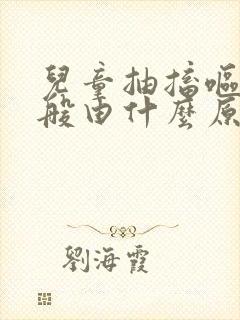 兒童抽搐嘔
般由什麼原
劉海霞